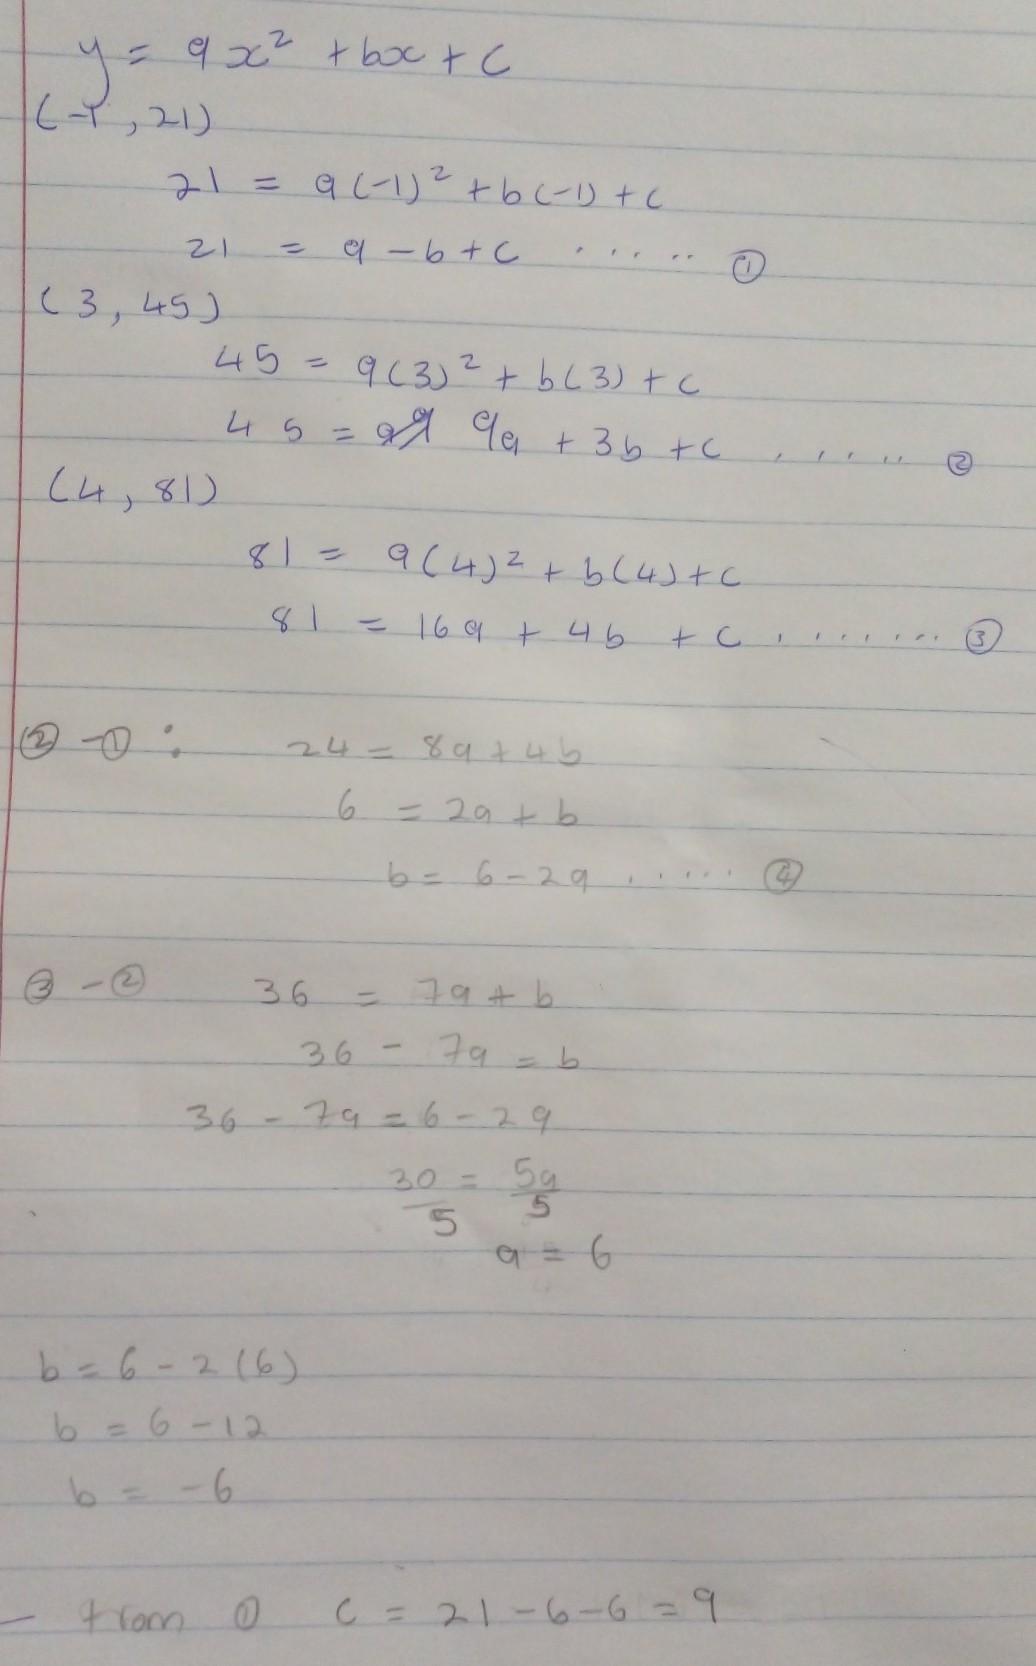 y = ax² + bx + c
(-1, 21)
21 = a(-1)² + b(-1) + c
21 = a - b + c ...... ①
(3, 45)
45 = a(3)² + b(3) + c
45 = 9a + 3b + c ...... ②
(4, 81)
81 = a(4)² + b(4) + c
81 = 16a + 4b + c ........ ③
② - ① : 24 = 8a + 4b
6 = 2a + b
b = 6 - 2a ...... ④
③ - ② 36 = 7a + b
36 - 7a = b
36 - 7a = 6 - 2a
30/5 = 5a/5
a = 6
b = 6 - 2(6)
b = 6 - 12
b = -6
- from ① c = 21 - 6 - 6 = 9